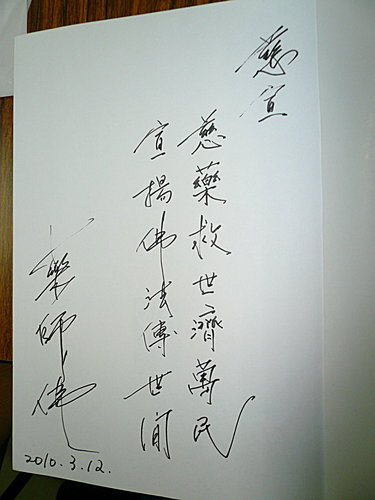 慈宣
慈藥救世濟萬民
宣揚佛法傳世間
藥師佛
2010.3.12.